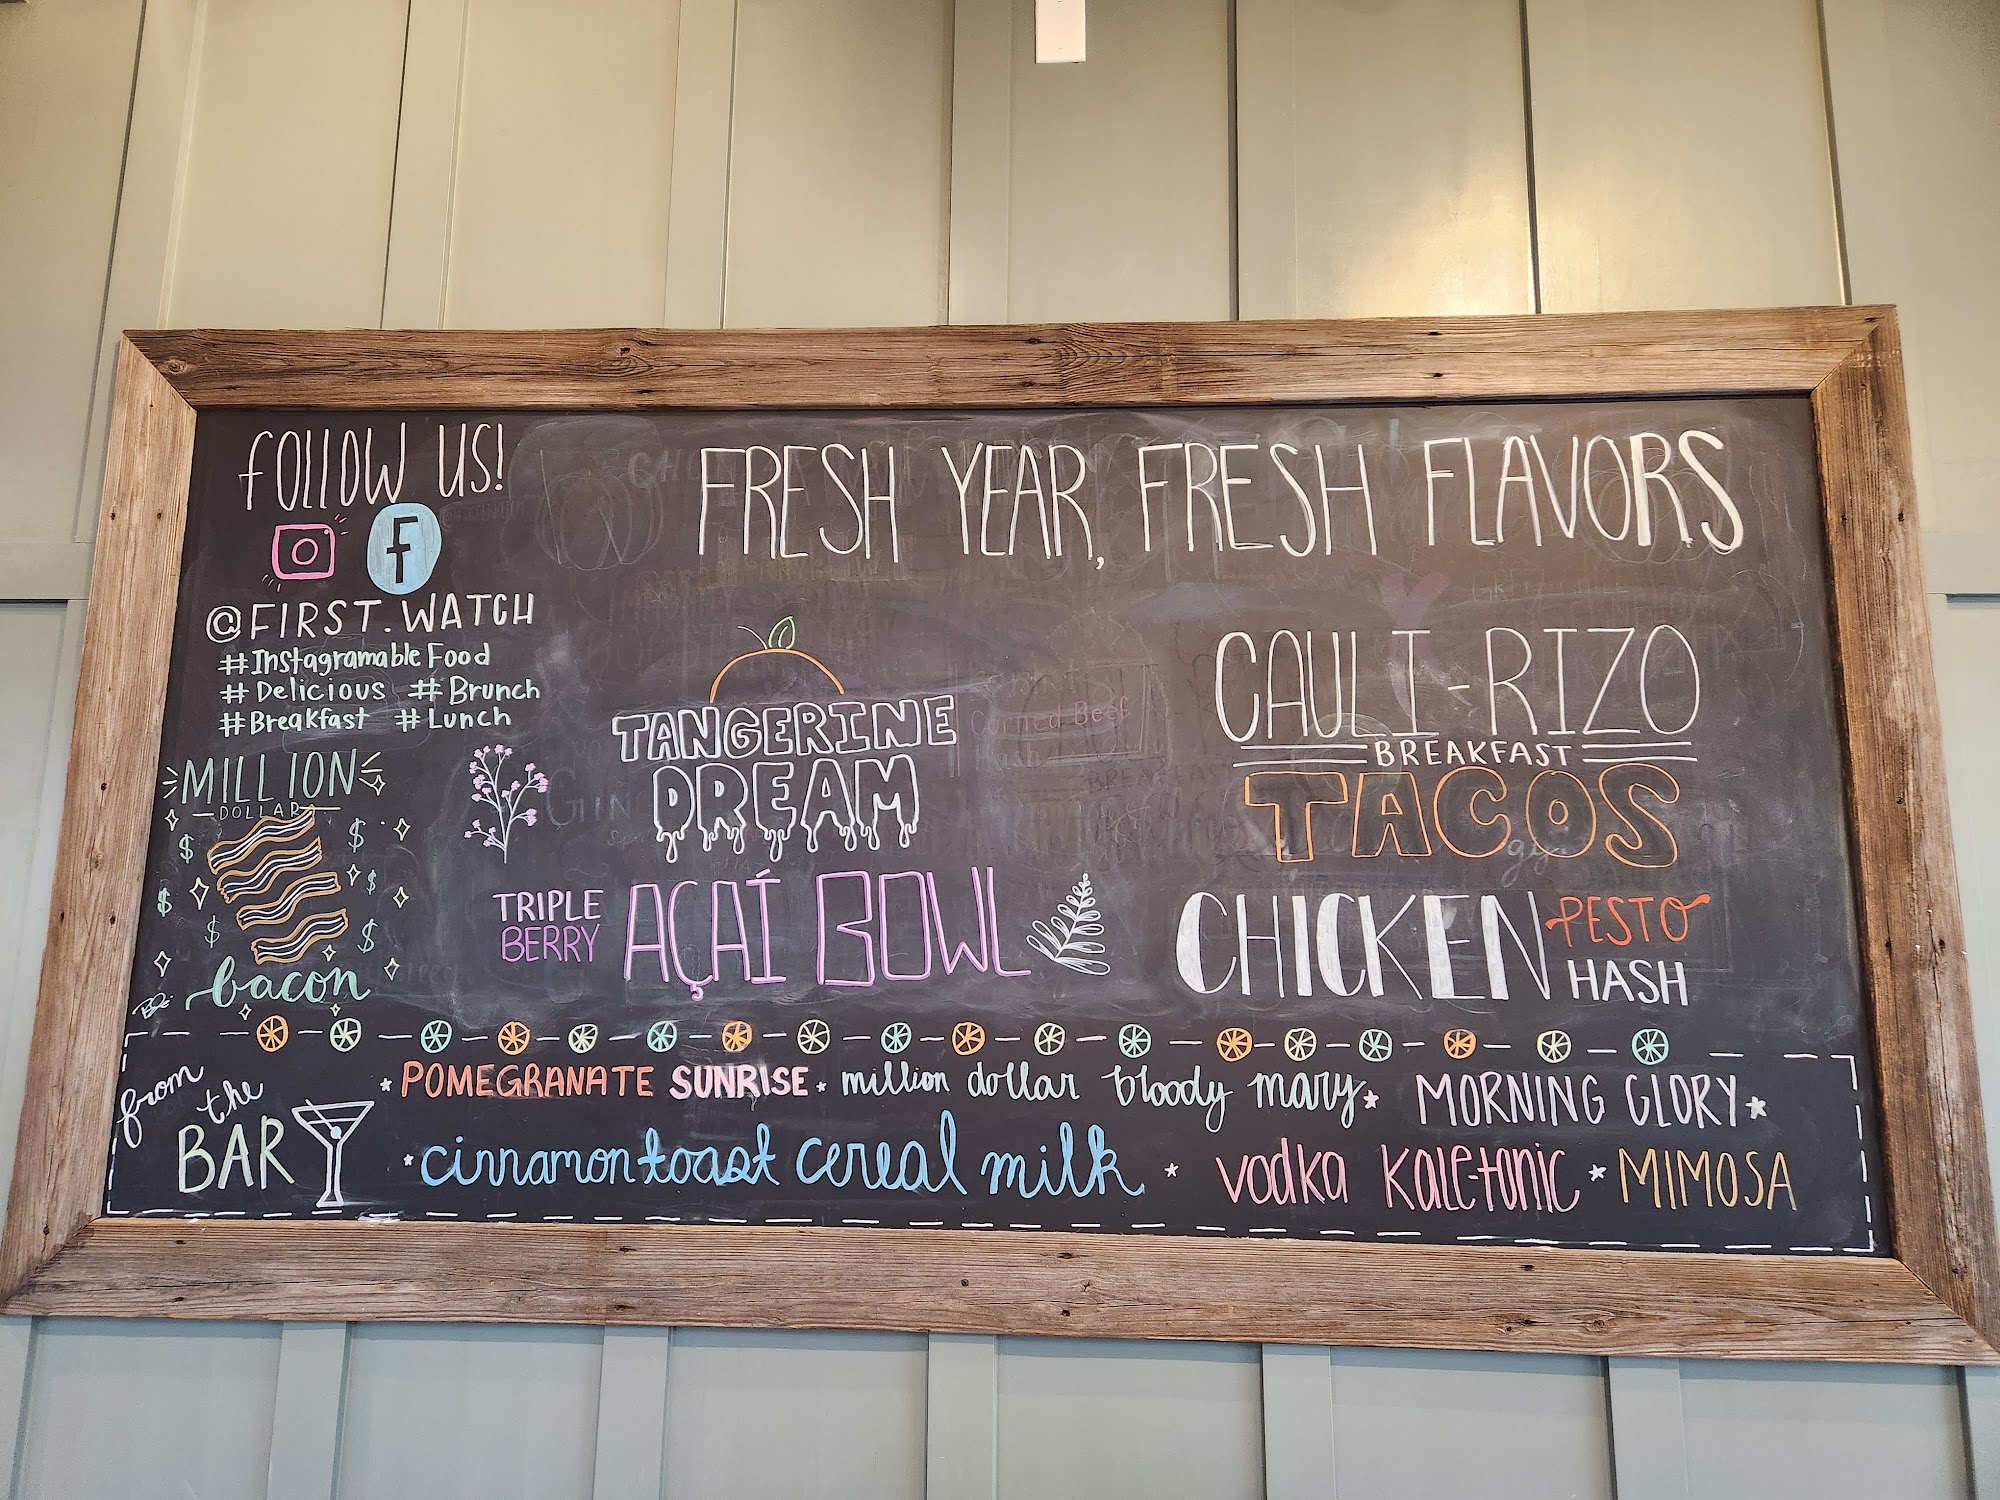 FOLLOW US!
@FIRST.WATCH
#Instagramable Food
#Delicious #Brunch
#Breakfast #Lunch
MILLION
DOLLAR
bacon
FRESH YEAR, FRESH FLAVORS
TANGERINE
DREAM
TRIPLE
BERRY
AÇAÍ BOWL
CAULI-RIZO
BREAKFAST
TACOS
CHICKEN PESTO
HASH
from
the
BAR
*POMEGRANATE SUNRISE* million dollar bloody mary* MORNING GLORY*
*cinnamon toast cereal milk * vodka kale-tonic * MIMOSA